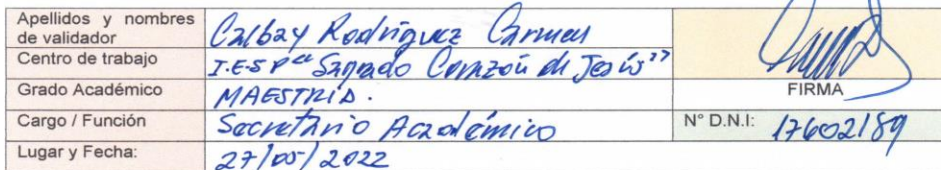 Apellidos y nombres
de validador
Calbay Rodríguez Carmen
Centro de trabajo
I.E.S P "Sagrado Corazón de Jesús"
Grado Académico
MAESTRIA.
FIRMA
Cargo / Función
Secretario Académico
N° D.N.I:
17602189
Lugar y Fecha:
27/05/2022